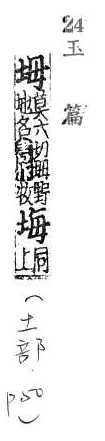 24
玉篇
坶
莫六切坶野
地名書作牧
同
上
(土部.P50)